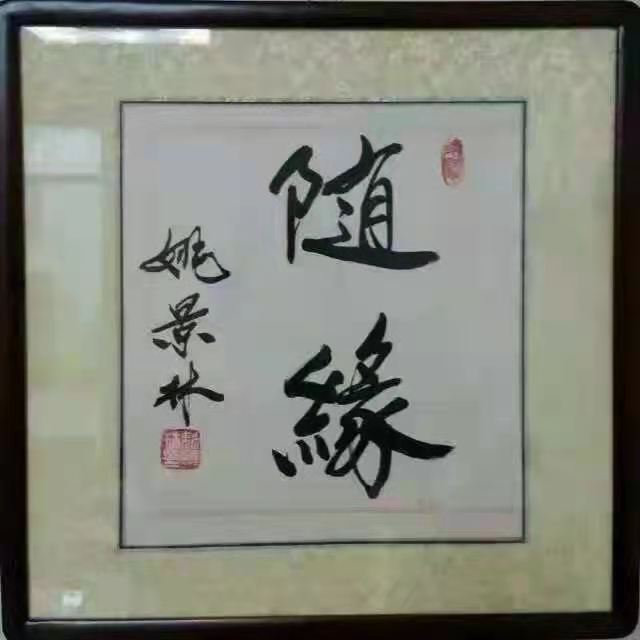 随緣
姚景林